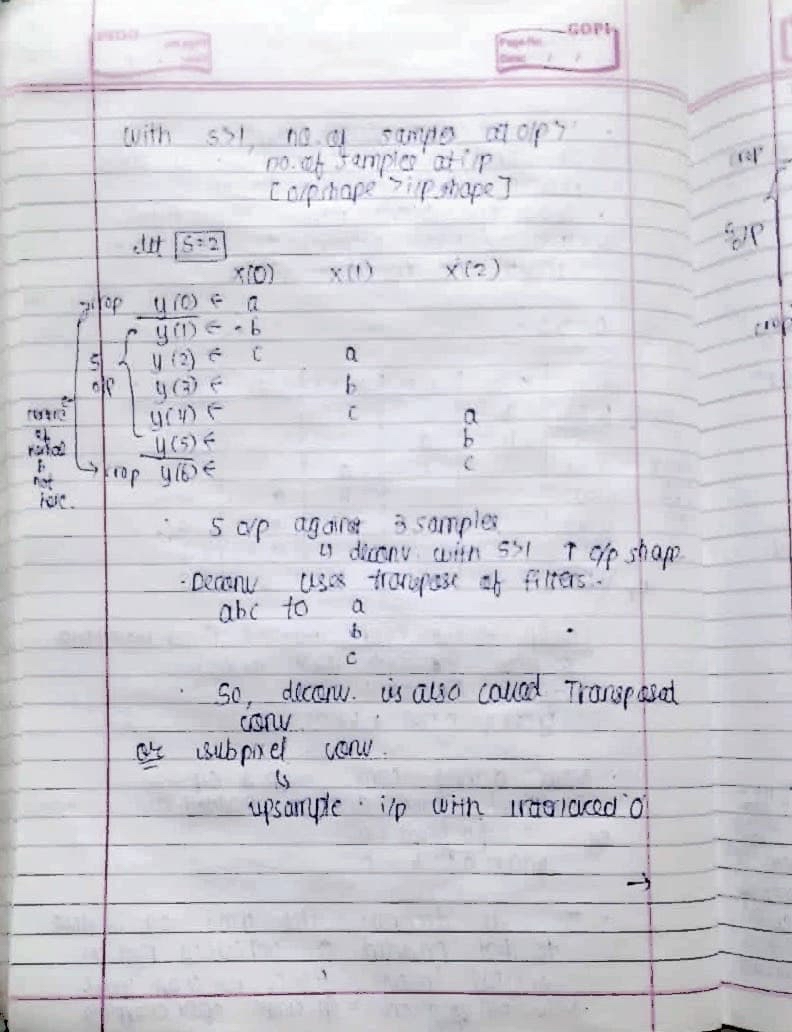 GOPI
Page No.
Date: / /
with s>1, no. of samples at o/p >
no. of samples at i/p
[o/p shape > i/p shape]
let S=2
x(0) x(1) x(2)
crop y(0) ← a
y(1) ← b
y(2) ← c a
5 o/p y(3) ← b
y(4) ← c a
y(5) ← b
crop y(6) ← c
centre
of
kernel
is
not
here.
5 o/p against 3 samples
↳ deconv. with S>1 ↑ o/p shape
- Deconv uses transpose of filters.
abc to a
b
c
So, deconv. is also called Transposed
conv
or subpixel conv.
↳
upsample i/p with interlaced '0'
→
crop
5
o/p
crop